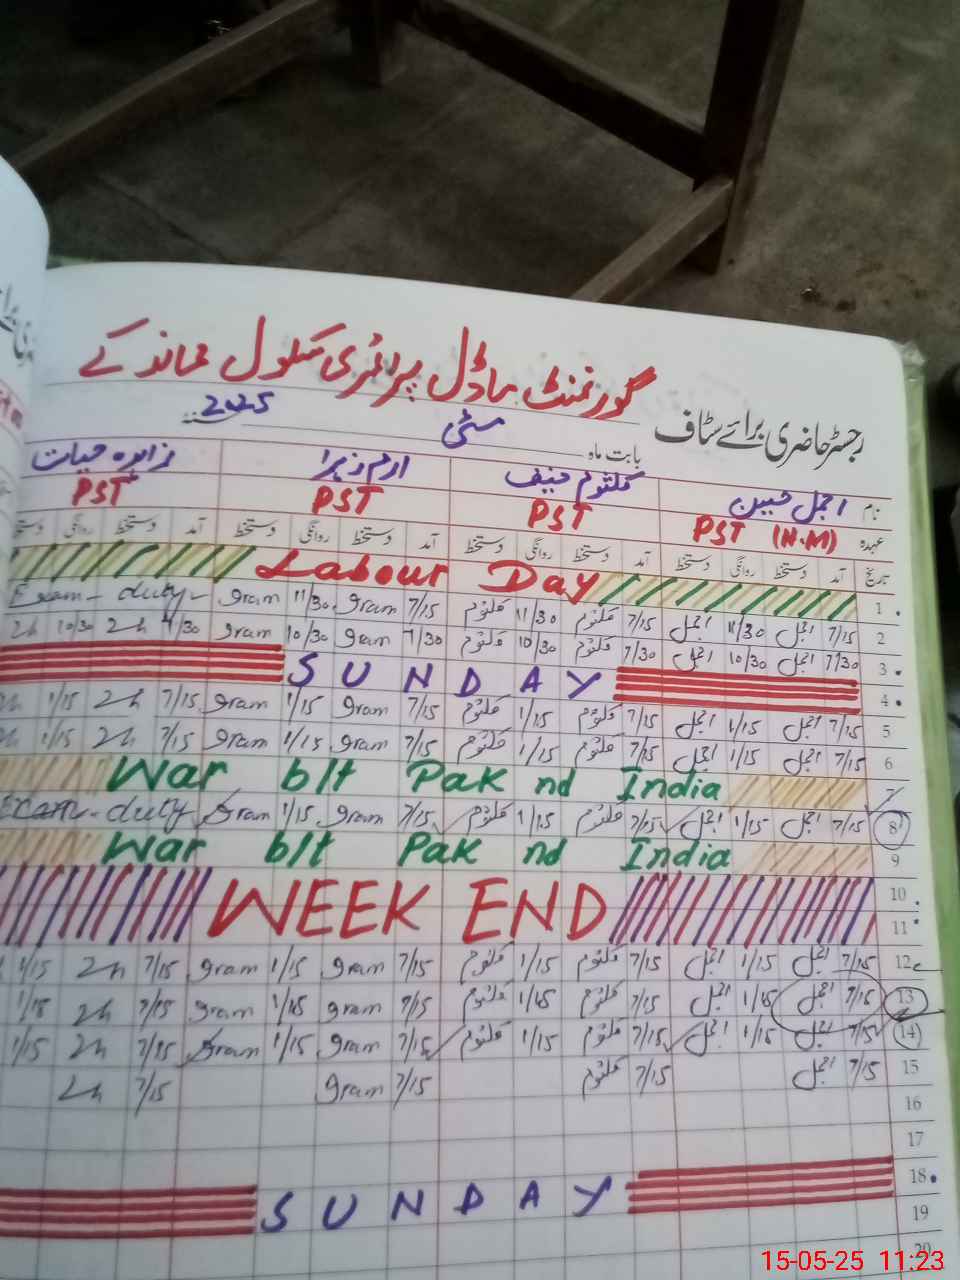 گورنمنٹ ماڈل پرائمری سکول
رجسٹر حاضری برائے سٹاف
بابت ماہ مئی 2025
نام اجمل حسین کلثوم حنیف ارم زہرا زاہدہ حیات
عہدہ PST (H.M) PST PST PST
تاریخ آمد دستخط روانگی دستخط آمد دستخط روانگی دستخط آمد دستخط روانگی دستخط آمد دستخط روانگی دستخط
1 Labour Day
2 7/15 اجمل 11/30 اجمل 7/15 کلثوم 11/30 کلثوم 7/15 Iram 11/30 Iram Exam-duty-
3 7/30 اجمل 10/30 اجمل 7/30 کلثوم 10/30 کلثوم 7/30 Iram 10/30 Iram 7/30 10/30
4 SUNDAY
5 7/15 اجمل 1/15 اجمل 7/15 کلثوم 1/15 کلثوم 7/15 Iram 1/15 Iram 7/15 1/15
6 7/15 اجمل 1/15 اجمل 7/15 کلثوم 1/15 کلثوم 7/15 Iram 1/15 Iram 7/15 1/15
7 War b/t Pak nd India
8 7/15 اجمل 1/15 اجمل 7/15 کلثوم 1/15 کلثوم 7/15 Iram 1/15 Iram Exam-duty
9 War b/t Pak nd India
10
11 WEEK END
12 7/15 اجمل 1/15 اجمل 7/15 کلثوم 1/15 کلثوم 7/15 Iram 1/15 Iram 7/15 1/15
13 7/15 اجمل 1/15 اجمل 7/15 کلثوم 1/15 کلثوم 7/15 Iram 1/15 Iram 7/15 1/15
14 7/15 اجمل 1/15 اجمل 7/15 کلثوم 1/15 کلثوم 7/15 Iram 1/15 Iram 7/15 1/15
15 7/15 اجمل 7/15 کلثوم 7/15 Iram 7/15
16
17
18 SUNDAY
19
20
15-05-25 11:23